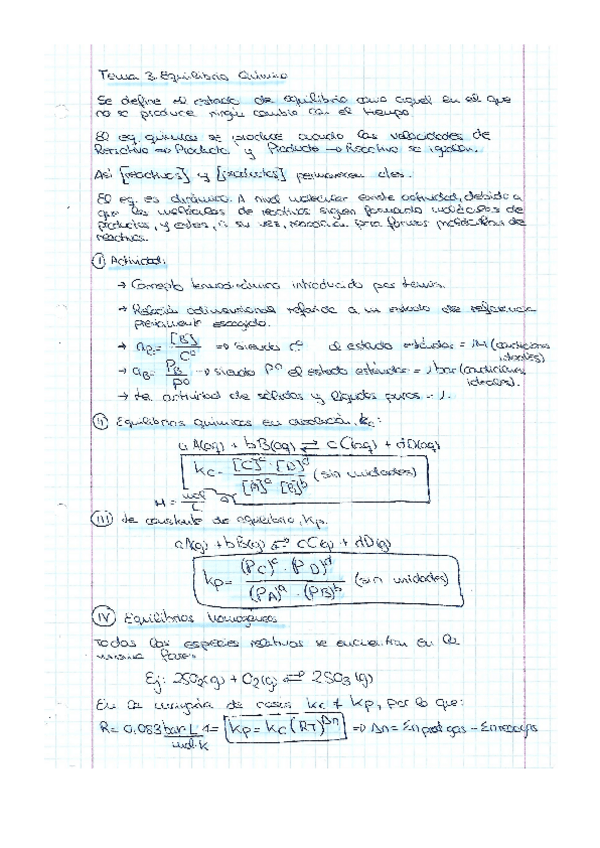 Tema 3. Equilibrio Químico
Se define el estado de equilibrio como aquel en el que
no se produce ningún cambio con el tiempo.
El eq. químico se produce cuando las velocidades de
Reactivo → Producto y Producto → Reactivo se igualan.
Así [reactivos] y [productos] permanecen ctes.
El eq. es dinámico. A nivel molecular existe actividad, debido a
que las moléculas de reactivos siguen formando moléculas de
productos, y estos, a su vez, reaccionan para formar moléculas de
reactivos.
I Actividad:
→ Concepto termodinámico introducido por Lewis.
→ Relación adimensional referida a un estado de referencia
previamente escogido.
→ aB = [B]/C° ⇒ siendo C° el estado estándar = 1M (condiciones
ideales)
→ aB = PB/P° → siendo P° el estado estándar = 1 bar (condiciones
ideales).
→ La actividad de sólidos y líquidos puros = 1.
II Equilibrios químicos en disolución, Kc:
aA(aq) + bB(aq) ⇄ cC(aq) + dD(aq)
Kc = [C]^c · [D]^d / [A]^a · [B]^b (sin unidades)
M = mol/L
III La constante de equilibrio, Kp.
aA(g) + bB(g) ⇄ cC(g) + dD(g)
Kp = (PC)^c · (PD)^d / (PA)^a · (PB)^b (sin unidades)
IV Equilibrios homogéneos
Todas las especies reactivas se encuentran en la
misma fase.
Ej: 2SO2(g) + O2(g) ⇄ 2SO3(g)
En la mayoría de casos Kc ≠ Kp, por lo que:
R = 0,083 bar·L/mol·K Kp = Kc (RT)^Δn ⇒ Δn = Σn prod gas − Σn reac gas